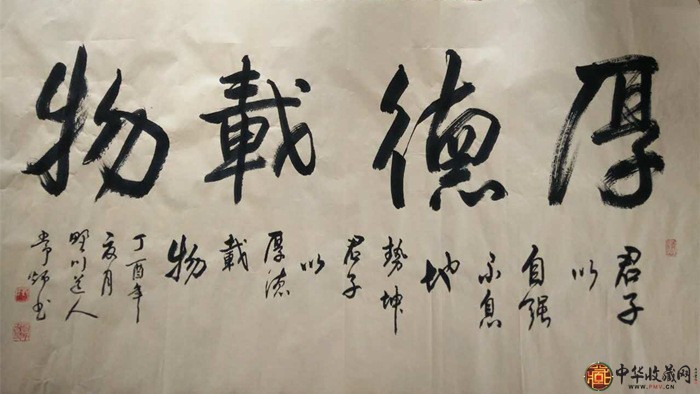 厚德載物
君子
以
自强
不息
地
勢坤
君子
以
厚德
載
物
丁酉年
夏月
野川道人
常书
中华收藏网